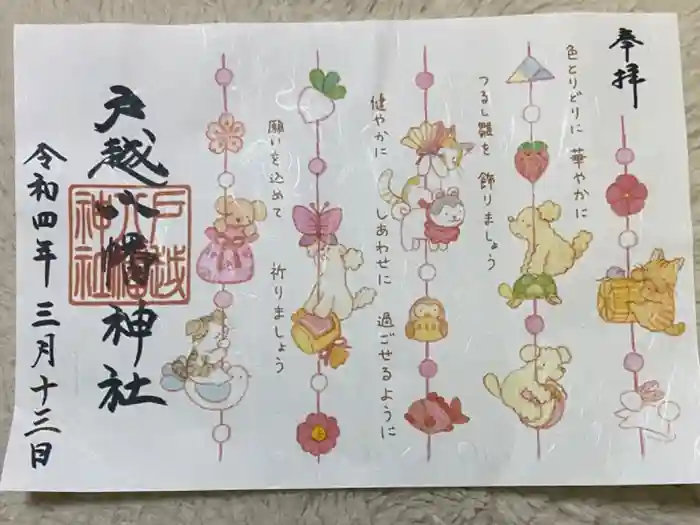 奉拝
色とりどりに 華やかに
つるし雛を 飾りましょう
健やかに しあわせに 過ごせるように
願いを込めて 祈りましょう
戸越八幡神社
戸越八幡神社
令和四年三月十三日